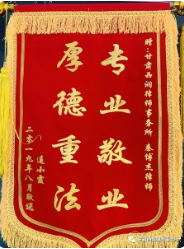 赠：甘肃西湘律师事务所 秦博杰律师
专业敬业
厚德重法
连小霞
二零一九年八月敬送